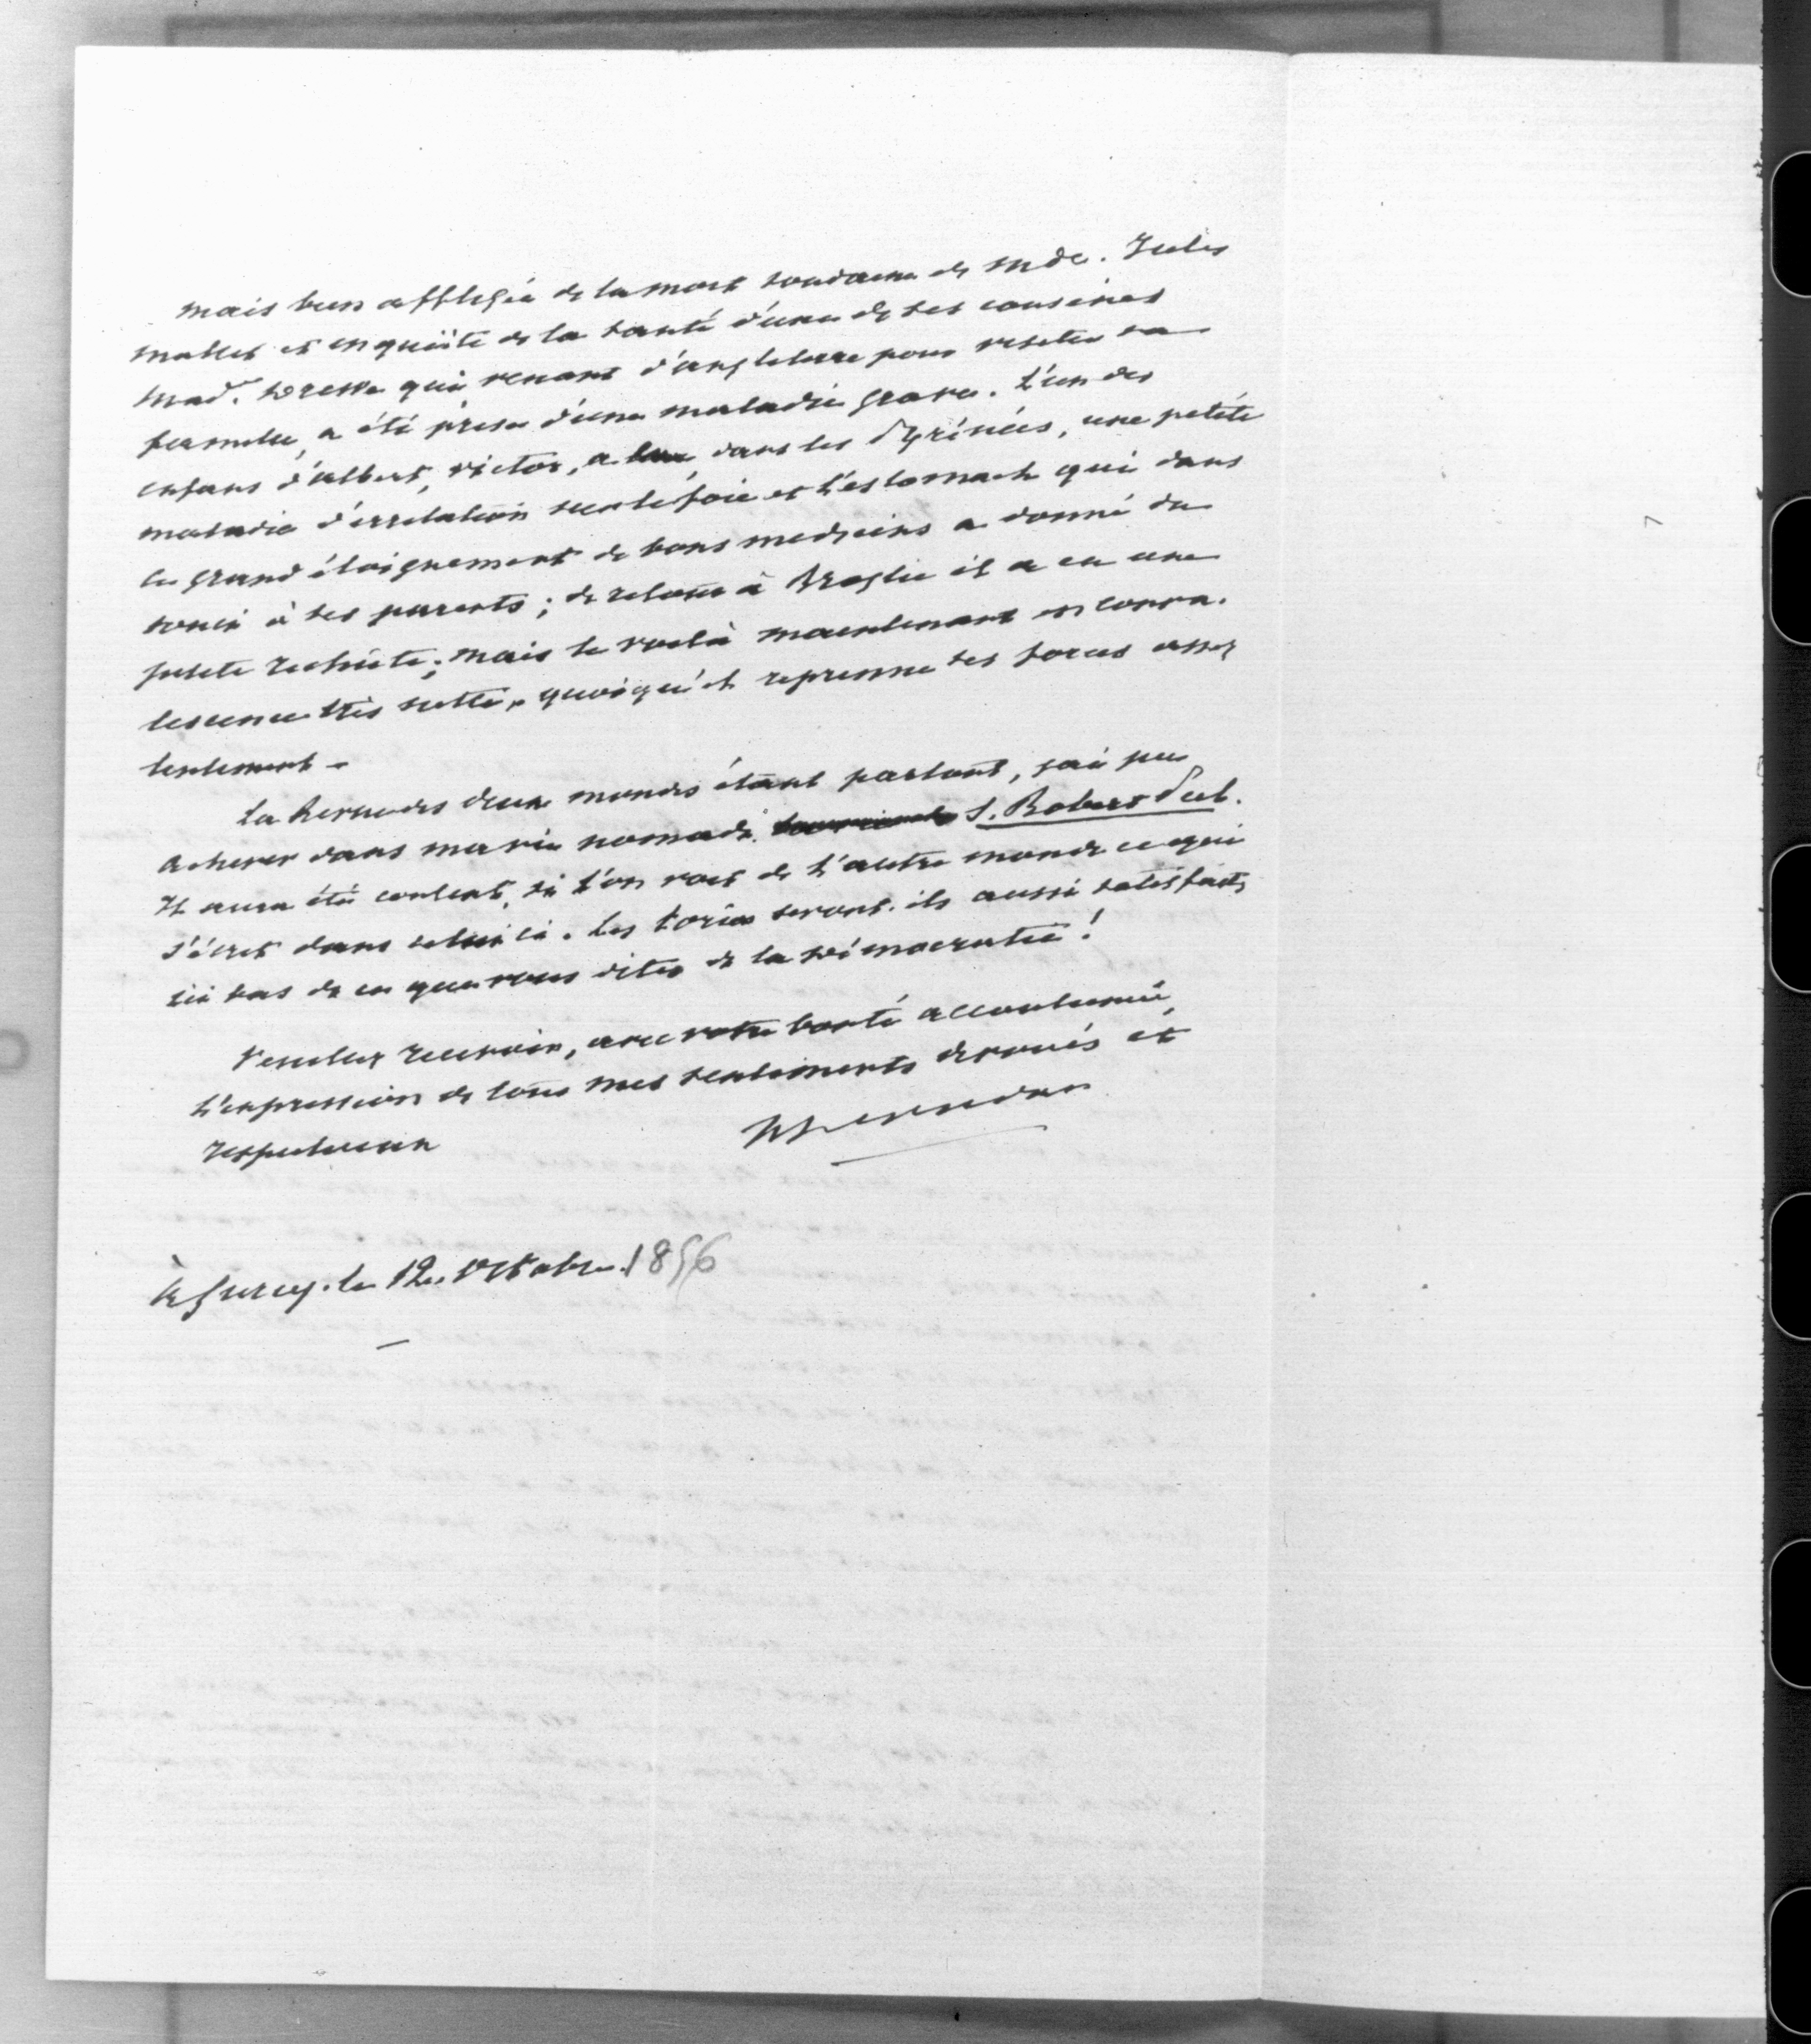 mais bien affligée de la mort soudaine de Mde. Jules
Mallet et inquiète de la santé d'une de ses cousines
Mad.
qui venant d'angleterre pour visiter sa
famille, a été prise d'une maladie grave. L'un des
enfans d'albert, victor, a eu dans les Pyrénées, une petite
maladie d'irritation sur le foie et l'estomach qui dans
le grand éloignement de bons medecins a donné du
souci à ses parents ; de retour à Broglie il a eu une
petite rechute ; mais le voilà maintenant en conva.
lescence très nette, quoiqu'il reprenne ses forces assez
lentement -
La Revue des deux mondes étant partout, j'ai pu
achever dans ma vie nomade S. Robert Peel.
Il aura été content, si l'on voit de l'autre monde ce qui
s'écrit dans celui ci. Les toris seront-ils aussi satisfaits
ici bas de ce que vous dites de la démocratie !
Veuillez recevoir, avec votre bonté accoutumée,
l'expression de tous mes sentiments dévoués et
respectueux
à Gurcy. le 12. Octobre. 1856